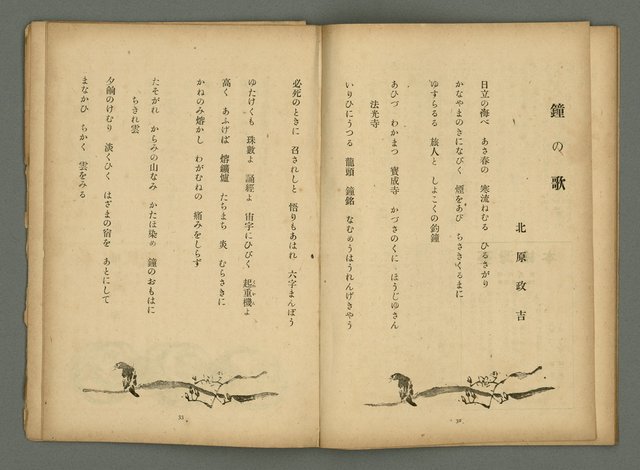 鐘の歌
北原政吉
日立の海べ あさ春の 寒流ねむる ひるさがり
かなやまのきになびく 煙をあび ちさきくるまに
ゆすらるる 旅人と しよこくの釣鐘
あひづ わかまつ 實成寺 かづさのくに ほうじゆさん
法光寺
いりひにうつる 龍頭 鐘銘 なむめうほうれんげきやう
32
必死のときに 召されしと 悟りもあはれ 六字まんぼう
ゆたけくも 珠數よ 誦經よ 宙宇にひびく 起重機よ
高く あふげば 熔鑛爐 たちまち 炎 むらさきに
かねのみ熔かし わがむねの 痛みをしらず
たそがれ からみの山なみ かたほ染め 鐘のおもはに
ちきれ雲
夕餉のけむり 淡くひく はざまの宿を あとにして
まなかひ ちかく 雲をみる
33